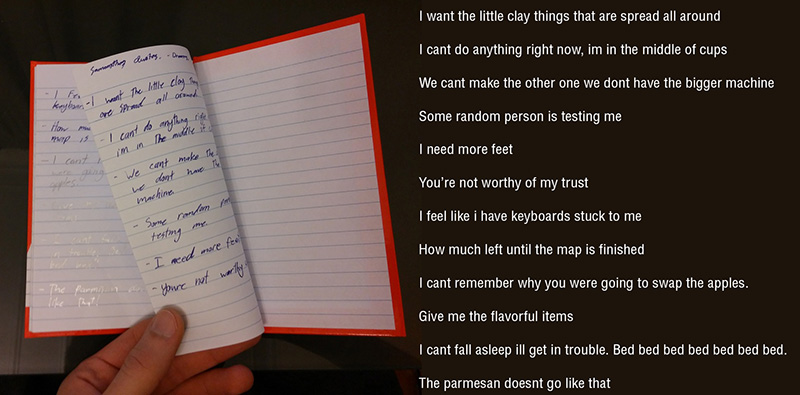 - I Fe
keyboar
- How mu
map is
- I cant
were going
apples
bed
- The Parmesan
like that
Quotes. -
- I want the little clay
are spread all around
- I cant do anything
im in the middle
- We cant make the
we dont have
machine.
- Some random
testing me.
- I need more fee
- Youre not worthy
I want the little clay things that are spread all around
I cant do anything right now, im in the middle of cups
We cant make the other one we dont have the bigger machine
Some random person is testing me
I need more feet
You're not worthy of my trust
I feel like i have keyboards stuck to me
How much left until the map is finished
I cant remember why you were going to swap the apples.
Give me the flavorful items
I cant fall asleep ill get in trouble. Bed bed bed bed bed bed bed.
The parmesan doesnt go like that